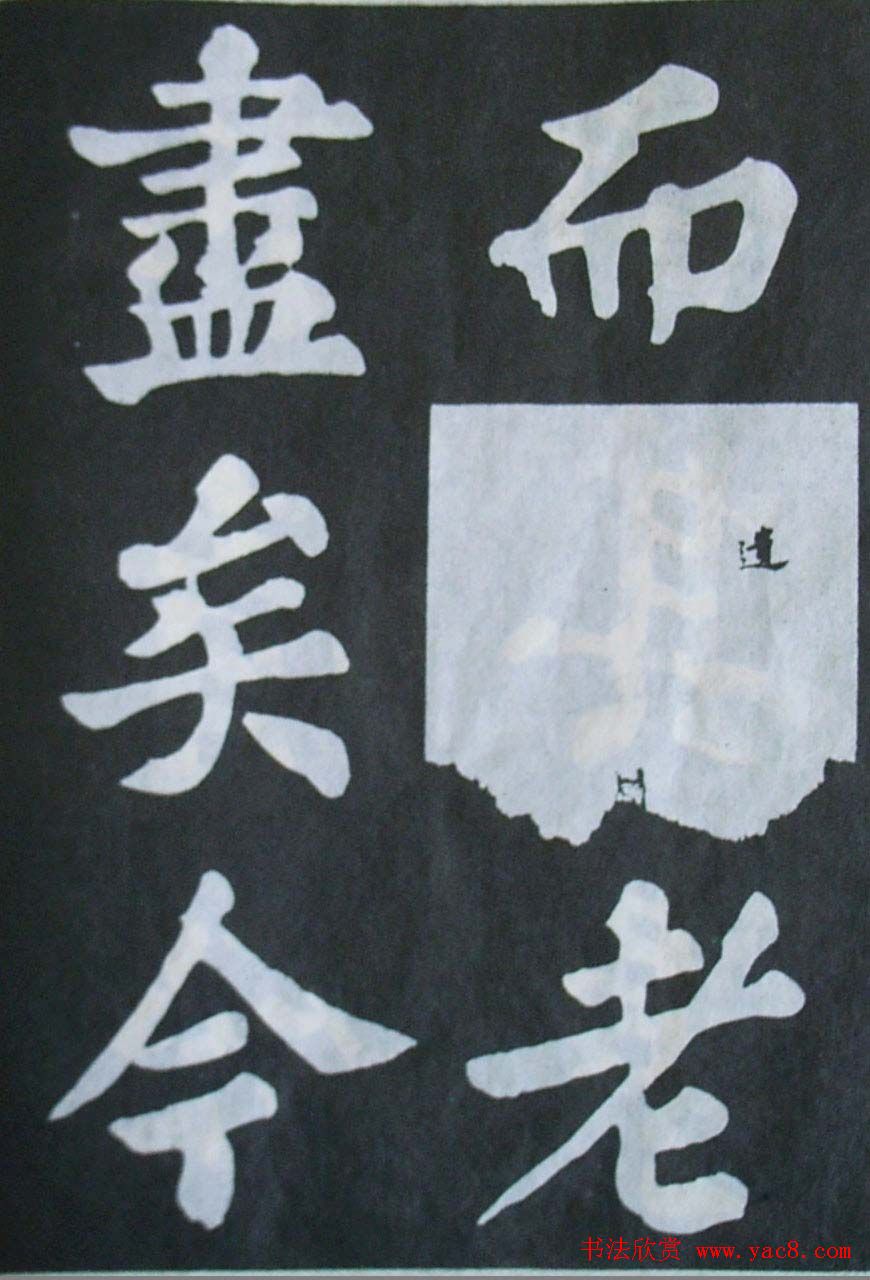 而老
盡矣今
书法欣赏 www.yac8.com